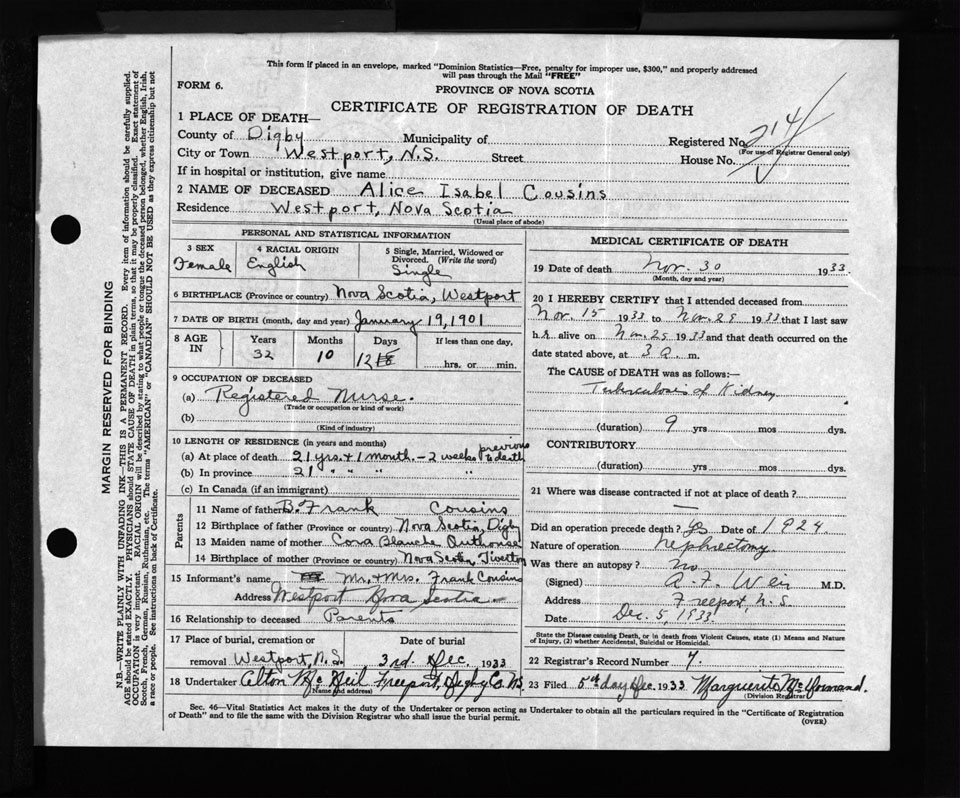 This form if placed in an envelope, marked "Dominion Statistics—Free, penalty for improper use, $300," and properly addressed
will pass through the Mail "FREE"
FORM 6.
PROVINCE OF NOVA SCOTIA
CERTIFICATE OF REGISTRATION OF DEATH
1 PLACE OF DEATH—
County of Digby Municipality of Registered No. 214
(For use of Registrar General only)
City or Town Westport, N.S. Street House No.
If in hospital or institution, give name
2 NAME OF DECEASED Alice Isabel Cousins
Residence Westport, Nova Scotia
(Usual place of abode)
PERSONAL AND STATISTICAL INFORMATION
3 SEX Female
4 RACIAL ORIGIN English
5 Single, Married, Widowed or
Divorced. (Write the word)
Single
6 BIRTHPLACE (Province or country) Nova Scotia, Westport
7 DATE OF BIRTH (month, day and year) January 19, 1901
8 AGE IN Years 32 Months 10 Days 12 18 If less than one day,
hrs. or min.
9 OCCUPATION OF DECEASED
(a) Registered Nurse.
(Trade or occupation or kind of work)
(b)
(Kind of industry)
10 LENGTH OF RESIDENCE (in years and months)
(a) At place of death 21 yrs. + 1 month. - 2 weeks previous to death
(b) In province 21 " " " "
(c) In Canada (if an immigrant)
Parents
11 Name of father B. Frank Cousins
12 Birthplace of father (Province or country) Nova Scotia, Digby
13 Maiden name of mother Cora Blanche Outhouse
14 Birthplace of mother (Province or country) Nova Scotia, Tiverton
15 Informant's name Mr. + Mrs. Frank Cousins
Address Westport Nova Scotia
16 Relationship to deceased Parents
17 Place of burial, cremation or
removal Westport, N.S.
Date of burial
3rd Dec. 1933
18 Undertaker Alton McNeil Freeport, Digby Co. N.S.
(Name and address)
MEDICAL CERTIFICATE OF DEATH
19 Date of death Nov. 30 1933.
(Month, day and year)
20 I HEREBY CERTIFY that I attended deceased from
Nov 15 1933 to Nov. 29 1933 that I last saw
h.r. alive on Nov. 29 1933 and that death occurred on the
date stated above, at 3 a. m.
The CAUSE OF DEATH was as follows:—
Tuberculosis of Kidney
(duration) 9 yrs mos dys.
CONTRIBUTORY
(duration) yrs. mos. dys.
21 Where was disease contracted if not at place of death?
—
Did an operation precede death? Yes Date of 1924
Nature of operation Nephrectomy
Was there an autopsy? No
(Signed) A. F. Weir M.D.
Address Freeport, N.S.
Date Dec. 5, 1933.
State the Disease causing Death, or in death from Violent Causes, state (1) Means and Nature
of Injury, (2) whether Accidental, Suicidal or Homicidal.
22 Registrar's Record Number 7.
23 Filed 5th day Dec. 1933 Marguerite McDormand.
(Division Registrar)
Sec. 46—Vital Statistics Act makes it the duty of the Undertaker or person acting as Undertaker to obtain all the particulars required in the "Certificate of Registration
of Death" and to file the same with the Division Registrar who shall issue the burial permit.
(OVER)
MARGIN RESERVED FOR BINDING
N.B.—WRITE PLAINLY WITH UNFADING INK—THIS IS A PERMANENT RECORD. Every item of information should be carefully supplied.
AGE should be stated EXACTLY. PHYSICIANS should STATE CAUSE OF DEATH in plain terms, so that it may be properly classified. Exact statement of
OCCUPATION is very important. RACIAL ORIGIN will be described by stating to what people or tongue the deceased person belonged, whether English, Irish,
Scotch, French, German, Russian, Ruthenian, etc. The terms "AMERICAN" or "CANADIAN" SHOULD NOT BE USED as they express citizenship but not
a race or people. See instructions on back of Certificate.